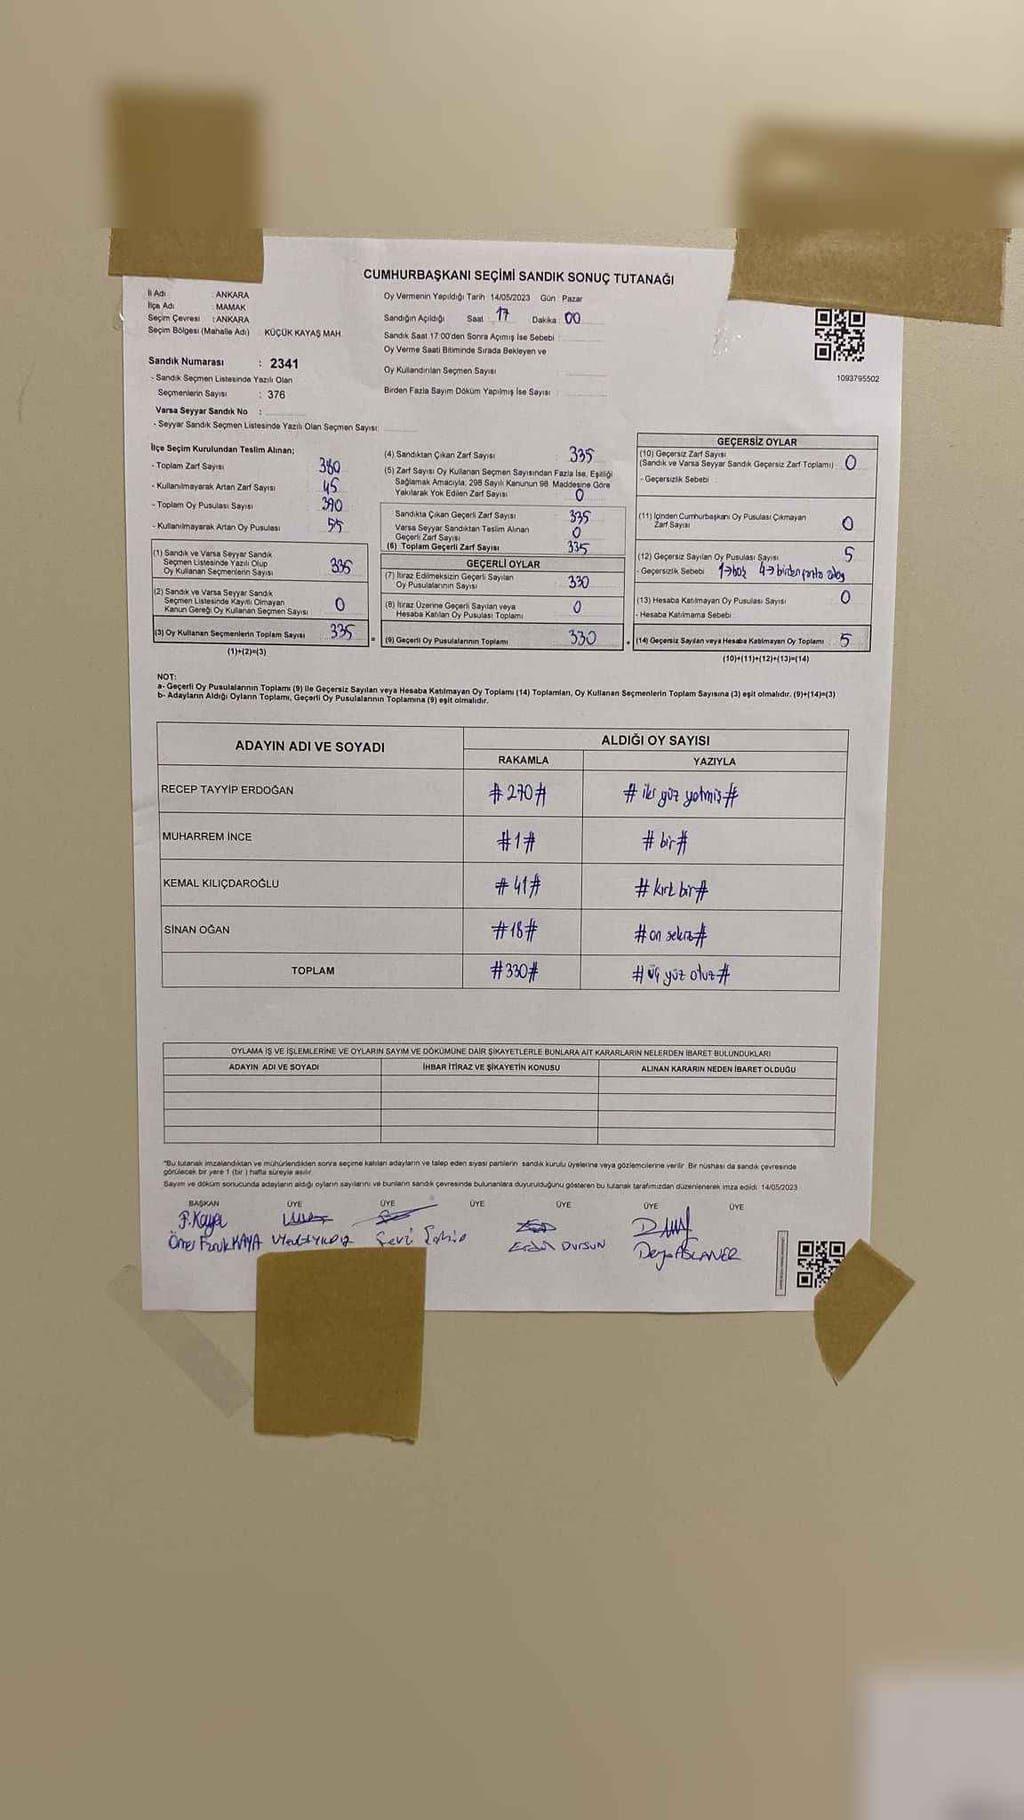 CUMHURBAŞKANI SEÇİMİ SANDIK SONUÇ TUTANAĞI
İl Adı : ANKARA
İlçe Adı : MAMAK
Seçim Çevresi : ANKARA
Seçim Bölgesi (Mahalle Adı) KÜÇÜK KAYAŞ MAH.
Sandık Numarası : 2341
- Sandık Seçmen Listesinde Yazılı Olan
Seçmenlerin Sayısı : 376
Varsa Seyyar Sandık No :
- Seyyar Sandık Seçmen Listesinde Yazılı Olan Seçmen Sayısı:
Oy Vermenin Yapıldığı Tarih 14/05/2023 Gün Pazar
Sandığın Açıldığı Saat 17 Dakika : 00
Sandık Saat 17:00'den Sonra Açımış İse Sebebi :
Oy Verme Saati Bitiminde Sırada Bekleyen ve
Oy Kullandırılan Seçmen Sayısı
Birden Fazla Sayım Döküm Yapılmış İse Sayısı :
1093795502
İlçe Seçim Kurulundan Teslim Alınan;
- Toplam Zarf Sayısı 380
- Kullanılmayarak Artan Zarf Sayısı 45
- Toplam Oy Pusulası Sayısı 390
- Kullanılmayarak Artan Oy Pusulası 55
(1) Sandık ve Varsa Seyyar Sandık
Seçmen Listesinde Yazılı Olup
Oy Kullanan Seçmenlerin Sayısı 335
(2) Sandık ve Varsa Seyyar Sandık
Seçmen Listesinde Kayıtlı Olmayan
Kanun Gereği Oy Kullanan Seçmen Sayısı 0
(3) Oy Kullanan Seçmenlerin Toplam Sayısı 335
(1)+(2)=(3)
(4) Sandıktan Çıkan Zarf Sayısı 335
(5) Zarf Sayısı Oy Kullanan Seçmen Sayısından Fazla İse, Eşitliği
Sağlamak Amacıyla; 298 Sayılı Kanunun 98. Maddesine Göre
Yakılarak Yok Edilen Zarf Sayısı 0
Sandıkta Çıkan Geçerli Zarf Sayısı 335
Varsa Seyyar Sandıktan Teslim Alınan
Geçerli Zarf Sayısı 0
(6) Toplam Geçerli Zarf Sayısı 335
GEÇERLİ OYLAR
(7) İtiraz Edilmeksizin Geçerli Sayılan
Oy Pusulalarının Sayısı 330
(8) İtiraz Üzerine Geçerli Sayılan veya
Hesaba Katılan Oy Pusulası Toplamı 0
(9) Geçerli Oy Pusulalarının Toplamı 330
GEÇERSİZ OYLAR
(10) Geçersiz Zarf Sayısı
(Sandık ve Varsa Seyyar Sandık Geçersiz Zarf Toplamı) 0
- Geçersizlik Sebebi :
(11) İçinden Cumhurbaşkanı Oy Pusulası Çıkmayan
Zarf Sayısı 0
(12) Geçersiz Sayılan Oy Pusulası Sayısı 5
- Geçersizlik Sebebi 1→boş 4→birden
(13) Hesaba Katılmayan Oy Pusulası Sayısı 0
- Hesaba Katılmama Sebebi :
(14) Geçersiz Sayılan veya Hesaba Katılmayan Oy Toplamı 5
(10)+(11)+(12)+(13)=(14)
NOT:
a- Geçerli Oy Pusulalarının Toplamı (9) ile Geçersiz Sayılan veya Hesaba Katılmayan Oy Toplamı (14) Toplamları, Oy Kullanan Seçmenlerin Toplam Sayısına (3) eşit olmalıdır. (9)+(14)=(3)
b- Adayların Aldığı Oyların Toplamı, Geçerli Oy Pusulalarının Toplamına (9) eşit olmalıdır.
ADAYIN ADI VE SOYADI
ALDIĞI OY SAYISI
RAKAMLA YAZIYLA
RECEP TAYYİP ERDOĞAN #270# # iki yüz yetmiş #
MUHARREM İNCE #1# # bir #
KEMAL KILIÇDAROĞLU #41# # kırk bir #
SİNAN OĞAN #18# # on sekiz #
TOPLAM #330# # üç yüz otuz #
OYLAMA İŞ VE İŞLEMLERİNE VE OYLARIN SAYIM VE DÖKÜMÜNE DAİR ŞİKAYETLERLE BUNLARA AİT KARARLARIN NELERDEN İBARET BULUNDUKLARI
ADAYIN ADI VE SOYADI İHBAR İTİRAZ VE ŞİKAYETİN KONUSU ALINAN KARARIN NEDEN İBARET OLDUĞU
*Bu tutanak imzalandıktan ve mühürlendikten sonra seçime katılan adayların ve talep eden siyasi partilerin sandık kurulu üyelerine veya gözlemcilerine verilir. Bir nüshası da sandık çevresinde
görülecek bir yere 1 (bir) hafta süreyle asılır.
Sayım ve döküm sonucunda adayların aldığı oyların sayılarını ve bunların sandık çevresinde bulunanlara duyurulduğunu gösteren bu tutanak tarafımızdan düzenlenerek imza edildi. 14/05/2023
BAŞKAN ÜYE ÜYE ÜYE ÜYE ÜYE ÜYE
F.Kaya
Ömer Faruk KAYA DURSUN Derya ASLANER